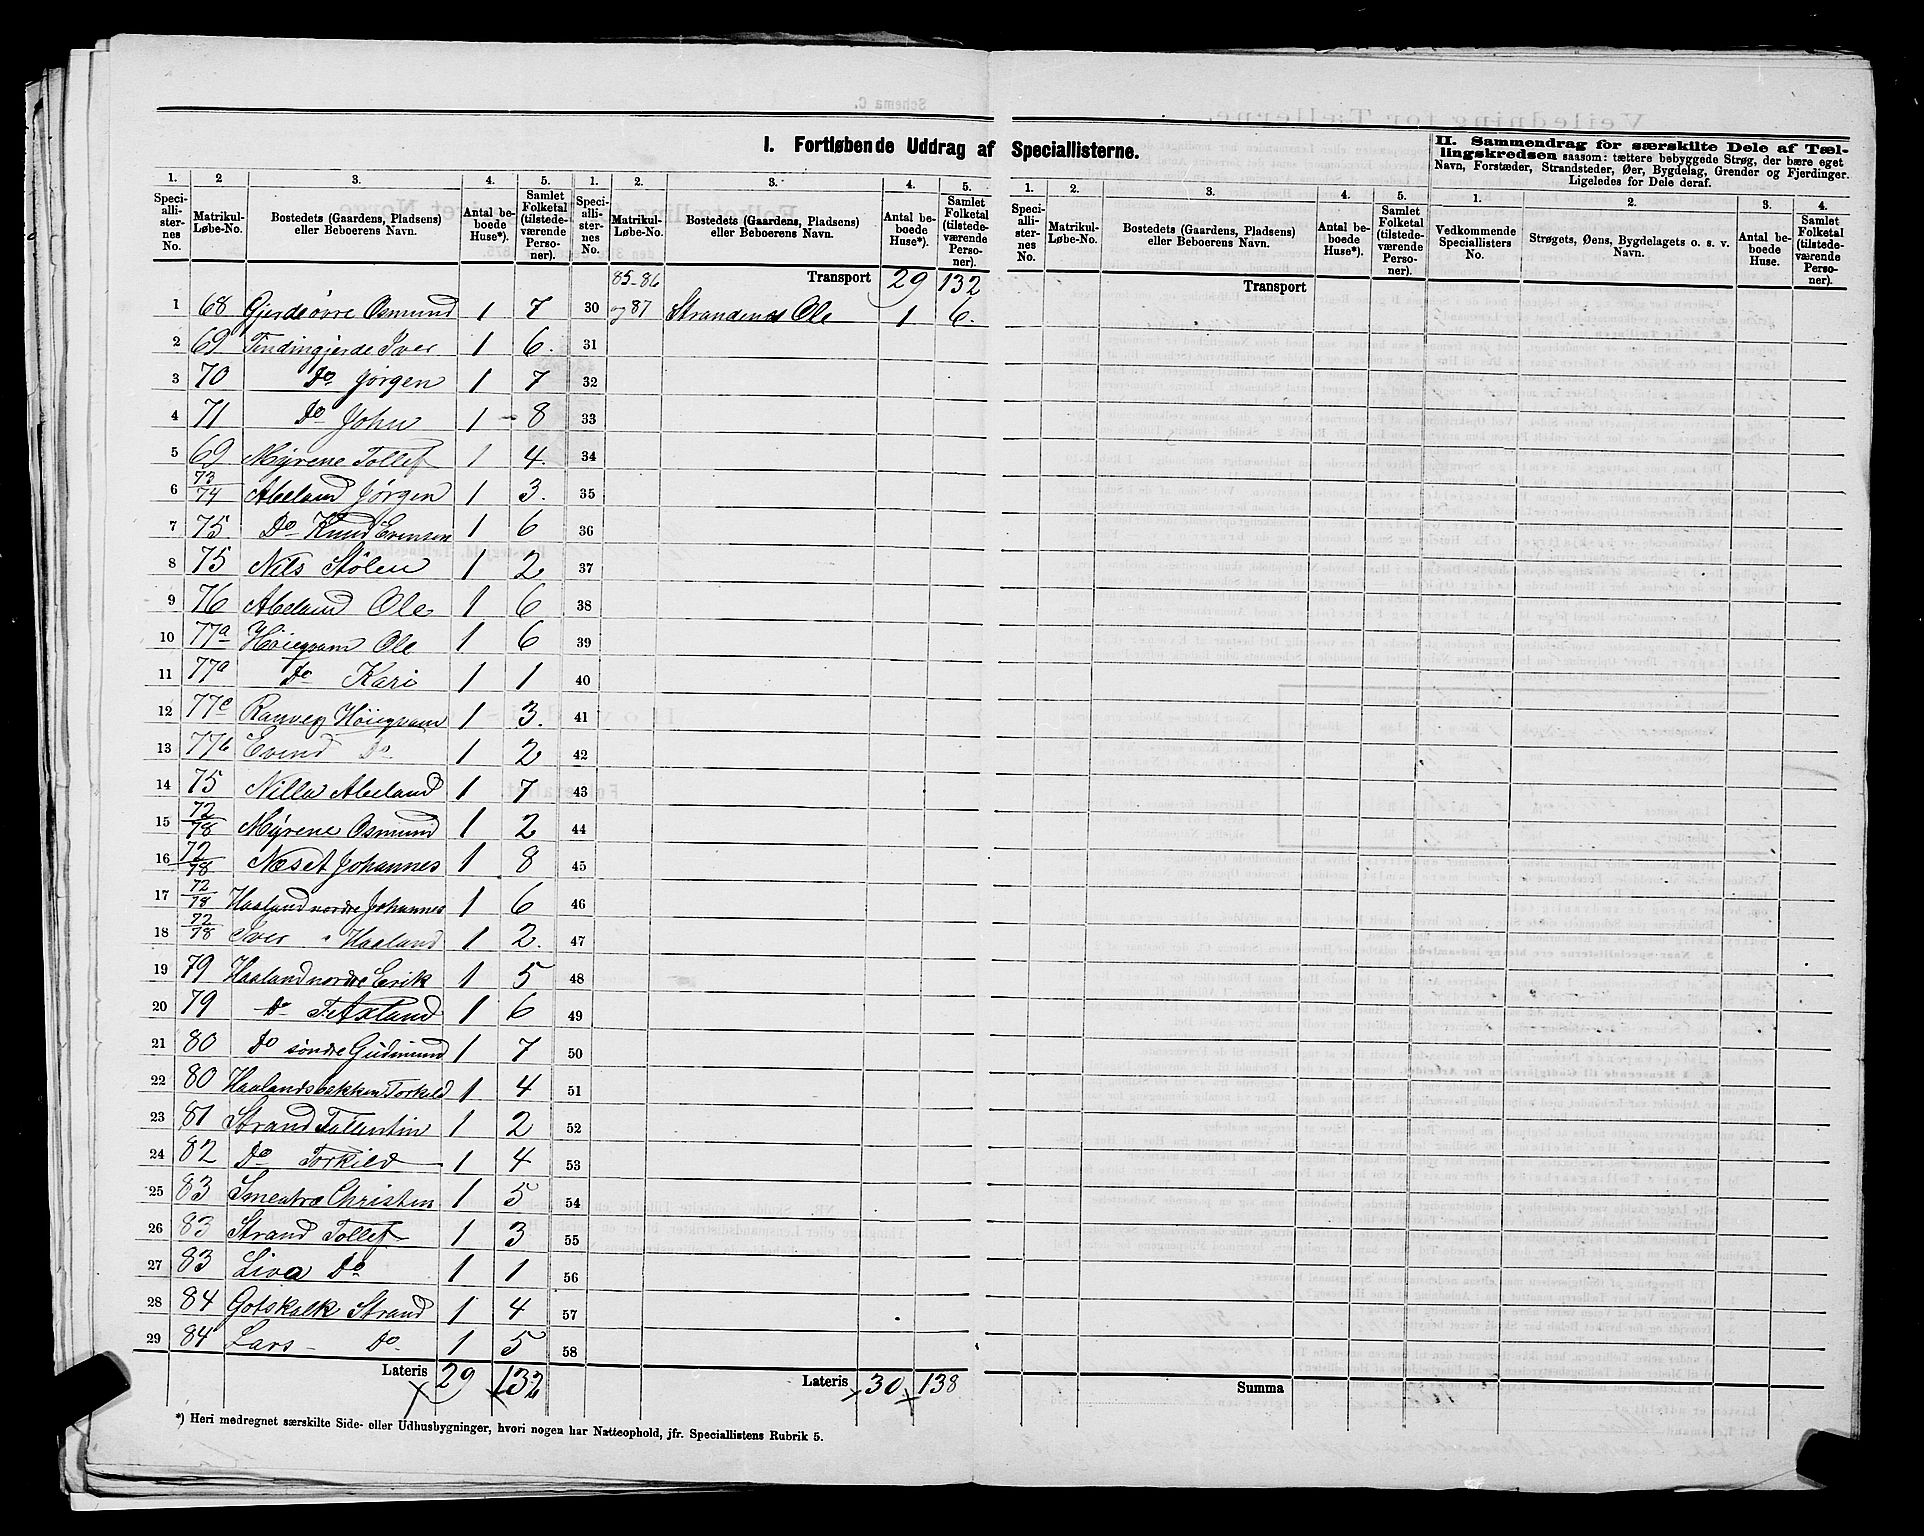 I. Fortløbende Uddrag af Speciallisterne.
II. Sammendrag for særskilte Dele af Tællingskredsen saasom: tættere bebyggede Strøg, der bære eget Navn, Forstæder, Strandsteder, Øer, Bygdelag, Grender og Fjerdinger. Ligeledes for Dele deraf.
1. 2 3. 4. 5. 1. 2. 3. 4. 5. 1. 2. 3. 4. 5. 1. 2. 3. 4.
Speciallisternes No. Matrikul-Løbe-No. Bostedets (Gaardens, Pladsens) eller Beboerens Navn. Antal beboede Huse*). Samlet Folketal (tilstedeværende Personer).
Speciallisternes No. Matrikul-Løbe-No. Bostedets (Gaardens, Pladsens) eller Beboerens Navn. Antal beboede Huse*). Samlet Folketal (tilstedeværende Personer).
Speciallisternes No. Matrikul-Løbe-No. Bostedets (Gaardens, Pladsens) eller Beboerens Navn. Antal beboede Huse*). Samlet Folketal (tilstedeværende Personer).
Vedkommende Speciallisters No. Strøgets, Øens, Bygdelagets o. s. v. Navn. Antal beboede Huse. Samlet Folketal (tilstedeværende Personer).
85-86 Transport 29 132 Transport
1 68 Gjerdeøvre Osmund 1 7 30 og 87 Strandenæs Ole 1 6.
2 69 Tendingjerde Iver 1 6. 31
3 70 Do Jørgen 1 7 32
4 71 Do John 1 - 8 33
5 69 Myrene Tollef 1 4. 34
6 73/74 Abeland Jørgen 1 3. 35
7 75. Do Knud Evensen 1 6 36
8 75 Nils Stølen 1 2 37
9 76 Abeland Ole 1 6 38
10 77a Høiegvam Ole 1 6 39
11 77a Do Kari 1 1 40
12 77c Ranveg Høiegvam 1 3. 41
13 77b Evind Do 1 2 42
14 75 Nilla Abeland 1 7 43
15 72/78 Myrene Osmund 1 2 44
16 72/78 Næset Johannes 1 8 45
17 72/78 Haaland nordre Johannes 1 6 46
18 72/78 Iver " Haaland 1 2. 47
19 79 Haaland nordre Erik 1 5 48
20 79 Do 1 6 49
21 80 Do søndre Gudmund 1 7 50
22 80 Haalandsbakken Torkild 1 4 51
23 81 Strand Falentin 1 2 52
24 82 Do Torkild 1 4 53
25 83 Smeatræ Christen 1 5 54
26 83 Strand Tollef 1 3 55
27 83 Liva Do 1 1 56
28 84 Gotskalk Strand 1 4 57
29 84 Lars - Do 1 5 58
Lateris 29 132 Lateris 30 138 Summa
*) Heri medregnet særskilte Side- eller Udhusbygninger, hvori nogen har Natteophold, jfr. Speciallistens Rubrik 5.